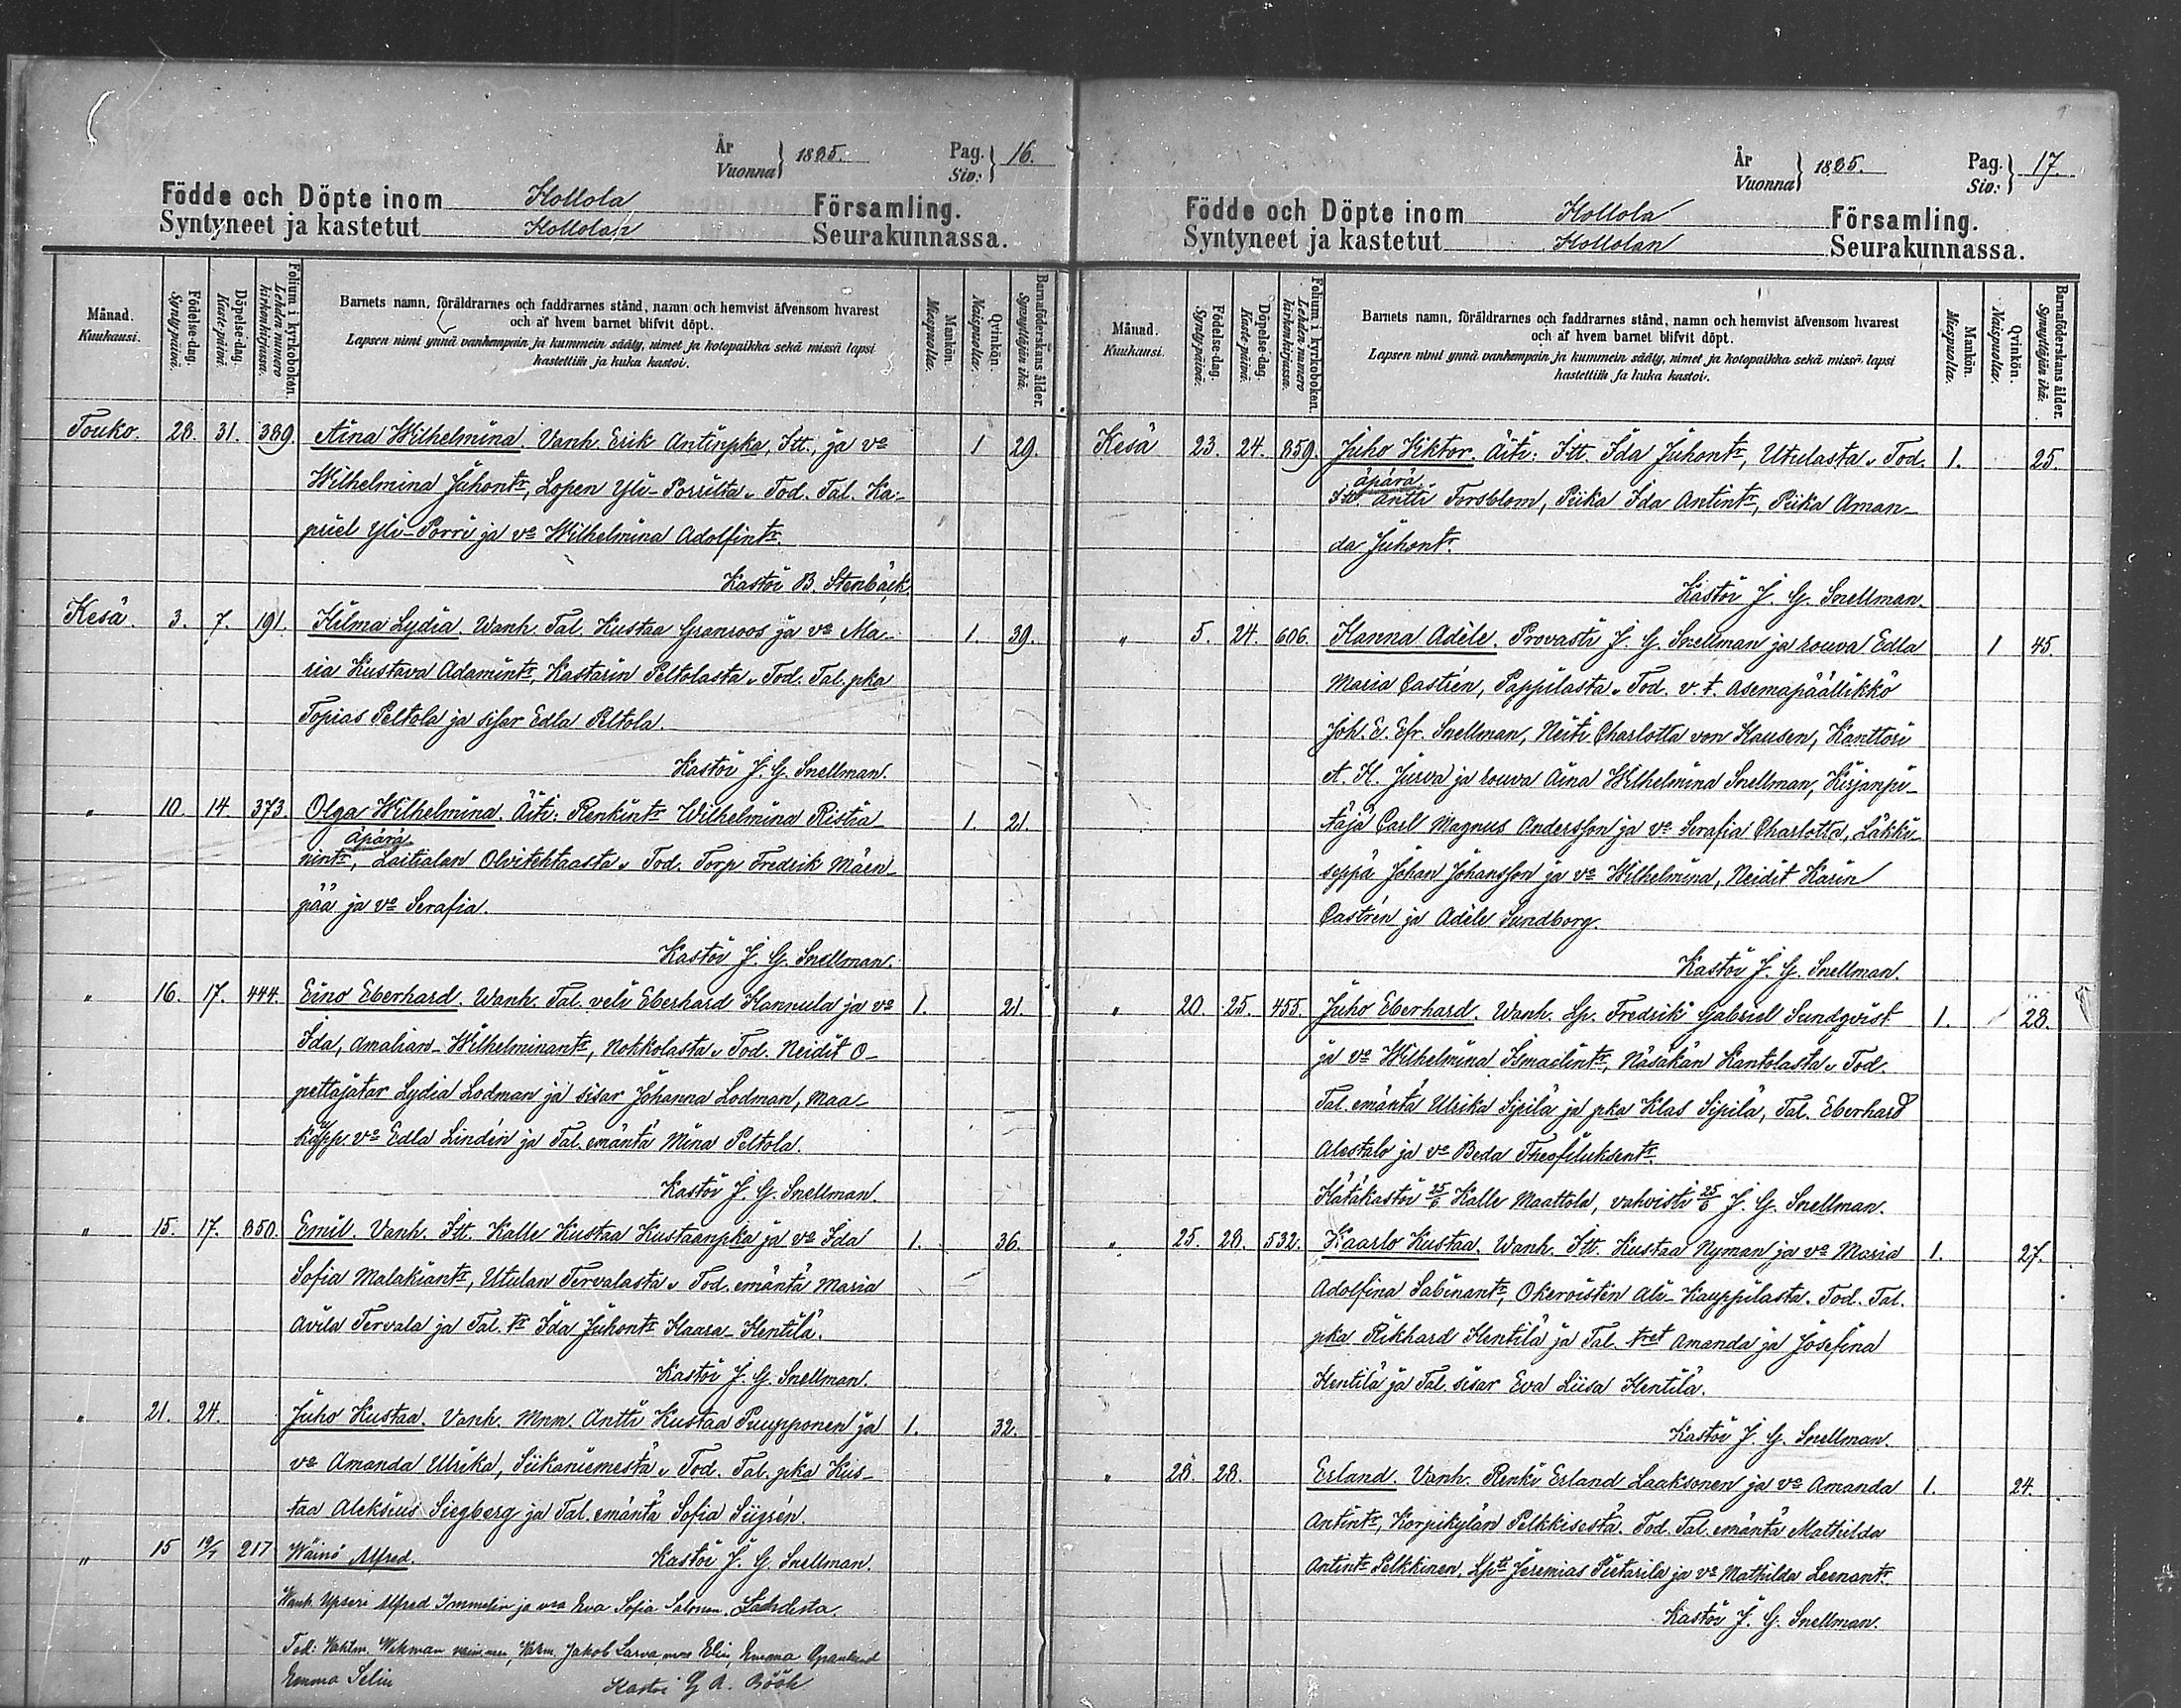 År
Vuonna } 1885.
Pag.
Siv: } 16.
Födde och Döpte inom Hollola Församling.
Syntyneet ja kastetut Hollolan Seurakunnassa.
Månad.
Kuukausi.
Födelse-dag.
Syntypäivä.
Döpelse-dag.
Kaste-päivä.
Folium i kyrkoboken.
Lehden numero kirkonkirjassa.
Barnets namn, föräldrarnes och faddrarnes stånd, namn och hemvist äfvensom hvarest
och af hvem barnet blifvit döpt.
Lapsen nimi ynnä vanhempain ja kummein sääty, nimet ja kotopaikka sekä missä lapsi
kastettiin ja kuka kastoi.
Mankön.
Miespuolta.
Qvinkön.
Naispuolta.
Barnaföderskans ålder.
Synnyttäjän ikä.
Touko. 28. 31. 389. Aina Wilhelmina. Vanh. Erik Antinpka, Itt., ja va 1 29.
Wilhelmina Juhontr, Lopen Yli-Porrilta. Tod. Tal. Ka-
priel Yli-Porri ja va Wilhelmina Adolfintr.
Kastoi B. Stenbäck.
Kesä. 3. 7. 191. Hilma Lydia. Wanh. Tal. Kustaa Granroos ja va Ma- 1. 39.
ria Kustava Adamintr, Kastarin Peltolasta. Tod. Tal. pka
Topias Peltola ja sisar Edla Peltola.
Kastoi J. G. Snellman.
" 10. 14. 373. Olga Wilhelmina. Äiti: Renkintr Wilhelmina Ristia- 1. 21.
äpärä
nintr, Laitialan Olvitehtaasta. Tod. Torp. Fredrik Mäen-
pää ja va Serafia.
Kastoi J. G. Snellman.
" 16. 17. 444. Eino Eberhard. Wanh. Tal. veli Eberhard Hannula ja va 1. 21.
Ida, Amalian-Wilhelminantr, Notkolasta. Tod. Neidit O-
pettajatar Lydia Lodman ja sisar Johanna Lodman, Maa-
kapp. va Edla Lindén ja Tal. emäntä Mina Peltola.
Kastoi J. G. Snellman.
" 15. 17. 850. Emil. Vanh. Itt. Kalle Kustaa Kustaanpka ja va Ida 1. 36.
Sofia Malakiantr, Utulan Tervalasta. Tod. emäntä Maria
Avila Tervala ja Tal. tr Ida Juhontr Haara-Hentilä.
Kastoi J. G. Snellman.
" 21. 24. Juho Kustaa. Vanh. Mnm. Antti Kustaa Puupponen ja 1. 32.
va Amanda Ulrika, Siikaniemestä. Tod. Tal. pka Kus-
taa Aleksius Siegberg ja Tal. emäntä Sofia Siigrén.
Kastoi J. G. Snellman.
" 15 19/7 217 Wäinö Alfred.
Wanh. Upseri Alfred Immelin ja vaa Eva Sofia Salonen. Lahdesta.
Tod: Wahtm. Wikman vaimonsa, Wahm. Jakob Larva, Elin, Emma Granlund
Emma Selin Kastoi G A. Böök
År
Vuonna } 1885.
Pag.
Siv: } 17.
Födde och Döpte inom Hollola Församling.
Syntyneet ja kastetut Hollolan Seurakunnassa.
Månad.
Kuukausi.
Födelse-dag.
Syntypäivä.
Döpelse-dag.
Kaste-päivä.
Folium i kyrkoboken.
Lehden numero kirkonkirjassa.
Barnets namn, föräldrarnes och faddrarnes stånd, namn och hemvist äfvensom hvarest
och af hvem barnet blifvit döpt.
Lapsen nimi ynnä vanhempain ja kummein sääty, nimet ja kotopaikka sekä missä lapsi
kastettiin ja kuka kastoi.
Mankön.
Miespuolta.
Qvinkön.
Naispuolta.
Barnaföderskans ålder.
Synnyttäjän ikä.
Kesä 23. 24. 859. Juho Viktor. Äiti: Itt. Ida Juhontr, Utulasta. Tod. 1. 25.
äpärä
Itt. Antti Forsblom, Piika Ida Antintr, Piika Aman-
da Juhontr.
Kastoi J. G. Snellman.
" 5. 24. 606. Hanna Adèle. Provasti J. G. Snellman ja rouva Edla 1 45.
Maria Castrén, Pappilasta. Tod. v. t. Asemapäällikkö
Joh. E. Efr. Snellman, Neiti Charlotta von Hausen, Kanttori
A. H. Jurva ja rouva Aina Wilhelmina Snellman, Kirjanpi-
täjä Carl Magnus Andersson ja va Serafia Charlotta, Läkki-
seppä Johan Johansson ja va Wilhelmina, Neidit Karin
Castrén ja Adèle Sundborg.
Kastoi J. G. Snellman.
" 20. 25. 455. Juho Eberhard. Wanh. Lp. Fredrik Gabriel Sundqvist 1. 28.
ja va Wilhelmina Ismaelintr, Näsäkän Kantolasta. Tod.
Tal. emäntä Ulrika Sipilä ja pka Klas Sipilä, Tal. Eberhard
Alestalo ja va Beda Theofiluksentr.
Hätäkastoi 25/6 Kalle Maattola, vahvisti 25/6 J. G. Snellman.
" 25. 28. 532. Kaarlo Kustaa. Wanh. Itt. Kustaa Nyman ja va Maria 1. 27.
Adolfina Sabinantr, Okeroisten Ali-Kauppilasta. Tod. Tal.
pka Rikhard Hentilä ja Tal. tret Amanda ja Josefina
Hentilä ja Tal. sisar Eva Liisa Hentilä.
Kastoi J. G. Snellman.
" 28. 28. Erland. Vanh. Renki Erland Laaksonen ja va Amanda 1. 24.
Antintr, Korpikylän Pelkkisestä. Tod. Tal. emäntä Mathilda
Antintr Pelkkinen, Lpst Jeremias Pietarila ja va Mathilda Leenantr.
Kastoi J. G. Snellman.